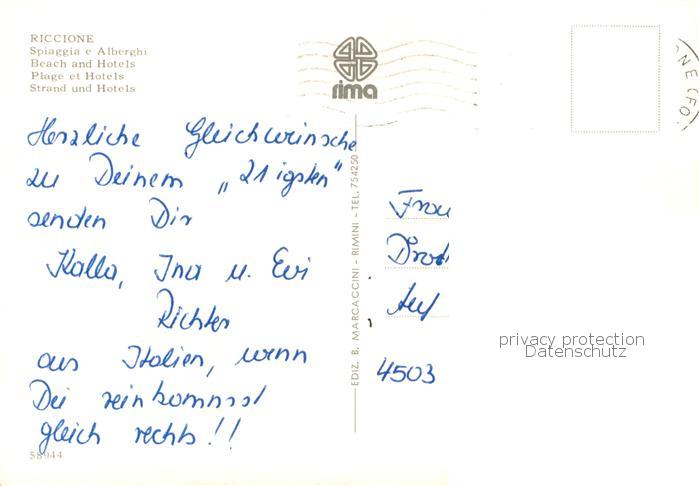 RICCIONE
Spiaggia e Alberghi
Beach and Hotels
Plage et Hotels
Strand und Hotels
rima
NE (FO
Herzliche Gleichwünsche
zu Deinem „21igsten"
senden Dir
Kalla, Ina u. Evi
Richter
aus Italien, wenn
Du reinkommst
gleich rechts!!
58944
EDIZ. B. MARCACCINI - RIMINI - TEL. 754250
Frau
Auf
4503
privacy protection
Datenschutz